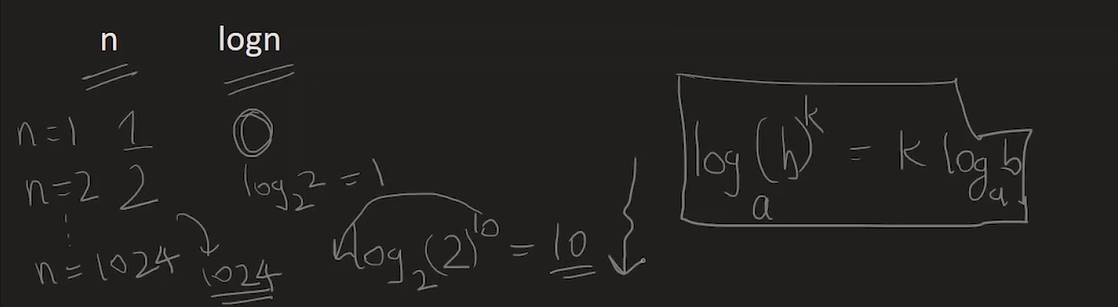 n logn
n=1 1 0
n=2 2 log₂2 = 1
⋮
n=1024 1024 log₂(2)¹⁰ = 10
logₐ(b)ᵏ = k logₐb